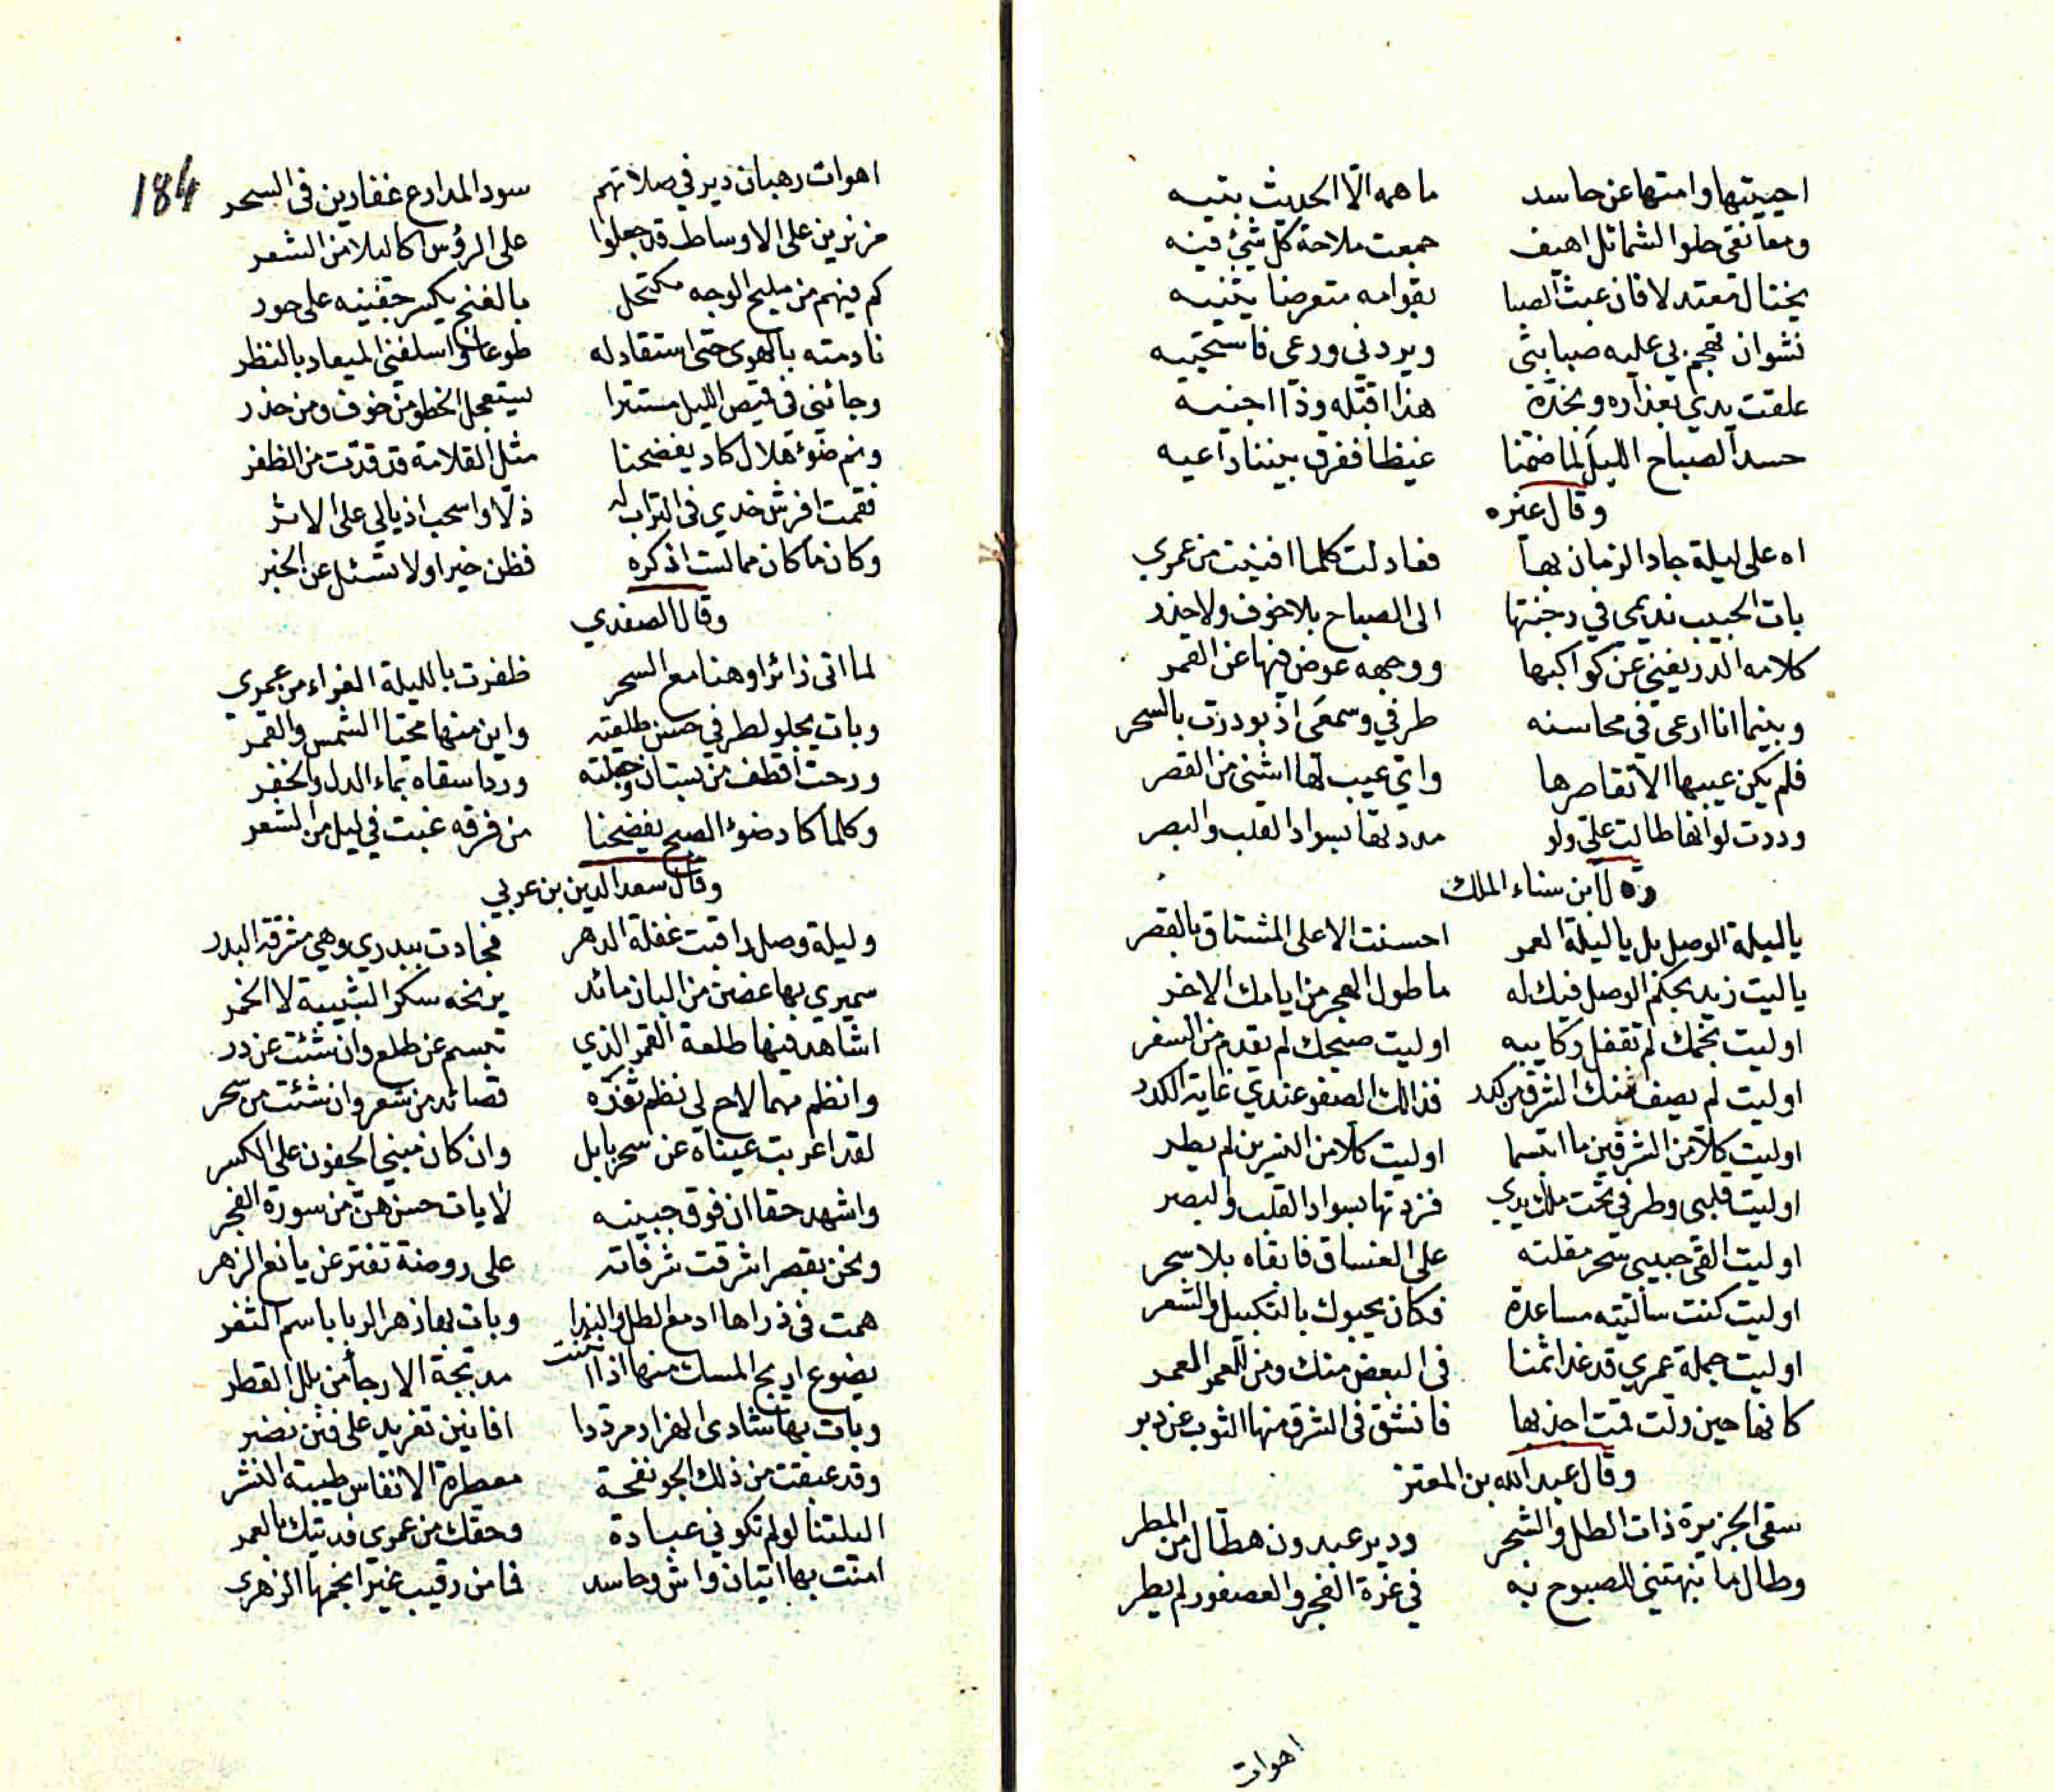 احييتها وامتها عن حاسد ما همه الا الحديث بتيه
ومعانقي حلو الشمائل اهيف جمعت ملاحة كل شئ فيه
يختال معتدلا فان عبث الصبا بقوامه متعرضا يثنيه
نشوان تهجم بي عليه صبابتي ويردني ورعي فاستحييه
علقت يدي بعذاره وبخده هذا اقبله وذا اجنيه
حسد الصباح الليل لما ضمنا غيظا ففرق بيننا داعيه
وقال غيره
اه على ليلة جاد الزمان بها فعادلت كلما افنيت من عمري
بات الحبيب نديمي في دجنتها الى الصباح بلا خوف ولا حذر
كلامه الدر يغني عن كواكبها ووجهه عوض فيها عن القمر
وبينما انا ارعى في محاسنه طرفي وسمعي اذ بودرت بالسحر
فلم يكن عيبها الا تقاصرها واي عيب لها اشنى من القصر
وددت لو انها طالت علي ولو مددتها بسواد القلب والبصر
وقال ابن سناء الملك
يا ليلة الوصل بل يا ليلة العمر احسنت الا على المشتاق بالقصر
يا ليت زيد بحكم الوصل فيك له ما طول الهجر من ايامك الاخر
او ليت نجمك لم تقفل ركايبه او ليت صبحك لم يقدم من السفر
او ليت لم يصف منك الشرق من كدر فذالك الصفو عندي غاية الكدر
او ليت كلا من الشرقين ما ابتسما او ليت كلا من النسرين لم يطر
او ليت قلبي وطرفي تحت ملك يدي فزدتها بسواد القلب والبصر
او ليت القى حبيبي سحر مقلته على العشاق فابقاه بلا سحر
او ليت كنت سالتيه مساعدة فكان يحبوك بالتكبيل والشعر
او ليت جملة عمري قد غدا ثمنا في البعض منك ومن للعمر المعمر
كانها حين ولت قمت اجذبها فانشق في الشرق منها الثوب عن دبر
وقال عبد الله بن المعتز
سقى الجزيرة ذات الطل والشجر ودير عبدون هطال من المطر
وطال ما نبهتني للصبوح به في غرة الفجر والعصفور لم يطر
اهوات
184
اهوات رهبان دير في صلاتهم سود المدارع غفارين في السحر
مزنرين على الاوساط قد جعلوا على الرؤس اكاليلا من الشعر
كم فيهم من مليح الوجه مكتحل بالغنج يكسر جفنيه على حور
نادمته بالهوى حتى استقاد له طوعا واسلفني الميعاد بالنظر
وجائني في قميص الليل مستترا يستعجل الخطو من خوف ومن حذر
ونم ضوء هلال كاد يفضحنا مثل القلامة قد قدت من الظفر
فقمت افرش خدي في التراب له ذلا واسحب اذيالي على الاثر
وكان ما كان مما لست اذكره فظن خيرا ولا تسئل عن الخبر
وقال الصفدي
لما اتى زائرا وهنا مع السحر ظفرت بالليلة الغراء من عمري
وبات يجلو لطرفي حسن طلعته واين منها محيا الشمس والقمر
ورحت اقطف من بستان وجنته وردا سقاه بماء الدل والخفر
وكلما كاد ضوء الصبح يفضحنا من فرقه غبت في ليل من الشعر
وقال سعد الدين بن عربي
وليلة وصل راقبت غفلة الدهر فجادت ببدري وهي مشرقة البدر
سميري بها غصن من البان مائد يرنحه سكر الشبيبة لا الخمر
اشاهد فيها طلعة القمر الذي تبسم عن طلع وان شئت عن در
وانظم مهما لاح لي نظم ثغره قصائد من شعر وان شئت من سحر
لقد اعربت عيناه عن سحر بابل وان كان مبني الجفون على الكسر
واشهد حقا ان فوق جبينه لايات حسن هن من سورة الفجر
ونحن بقصر اشرقت شرفاته على روضة تفتر عن يانع الزهر
همت في ذراها ادمع الطل والندا وبات بها زهر الربا باسم الثغر
يضوع اريج المسك منها اذا انثنت مدبجة الارجا من بلل القطر
وبات بها شادى الهزار مرددا افانين تغريد على فنن نضر
وقد عبقت من ذلك الجو نفحة معطرة الانفاس طيبة النشر
اليلتنا لو لم تكوني عبادة وحقك من عمري فديتك بالعمر
امنت بها اتيان واش وحاسد فما من رقيب غير انجمها الزهرى